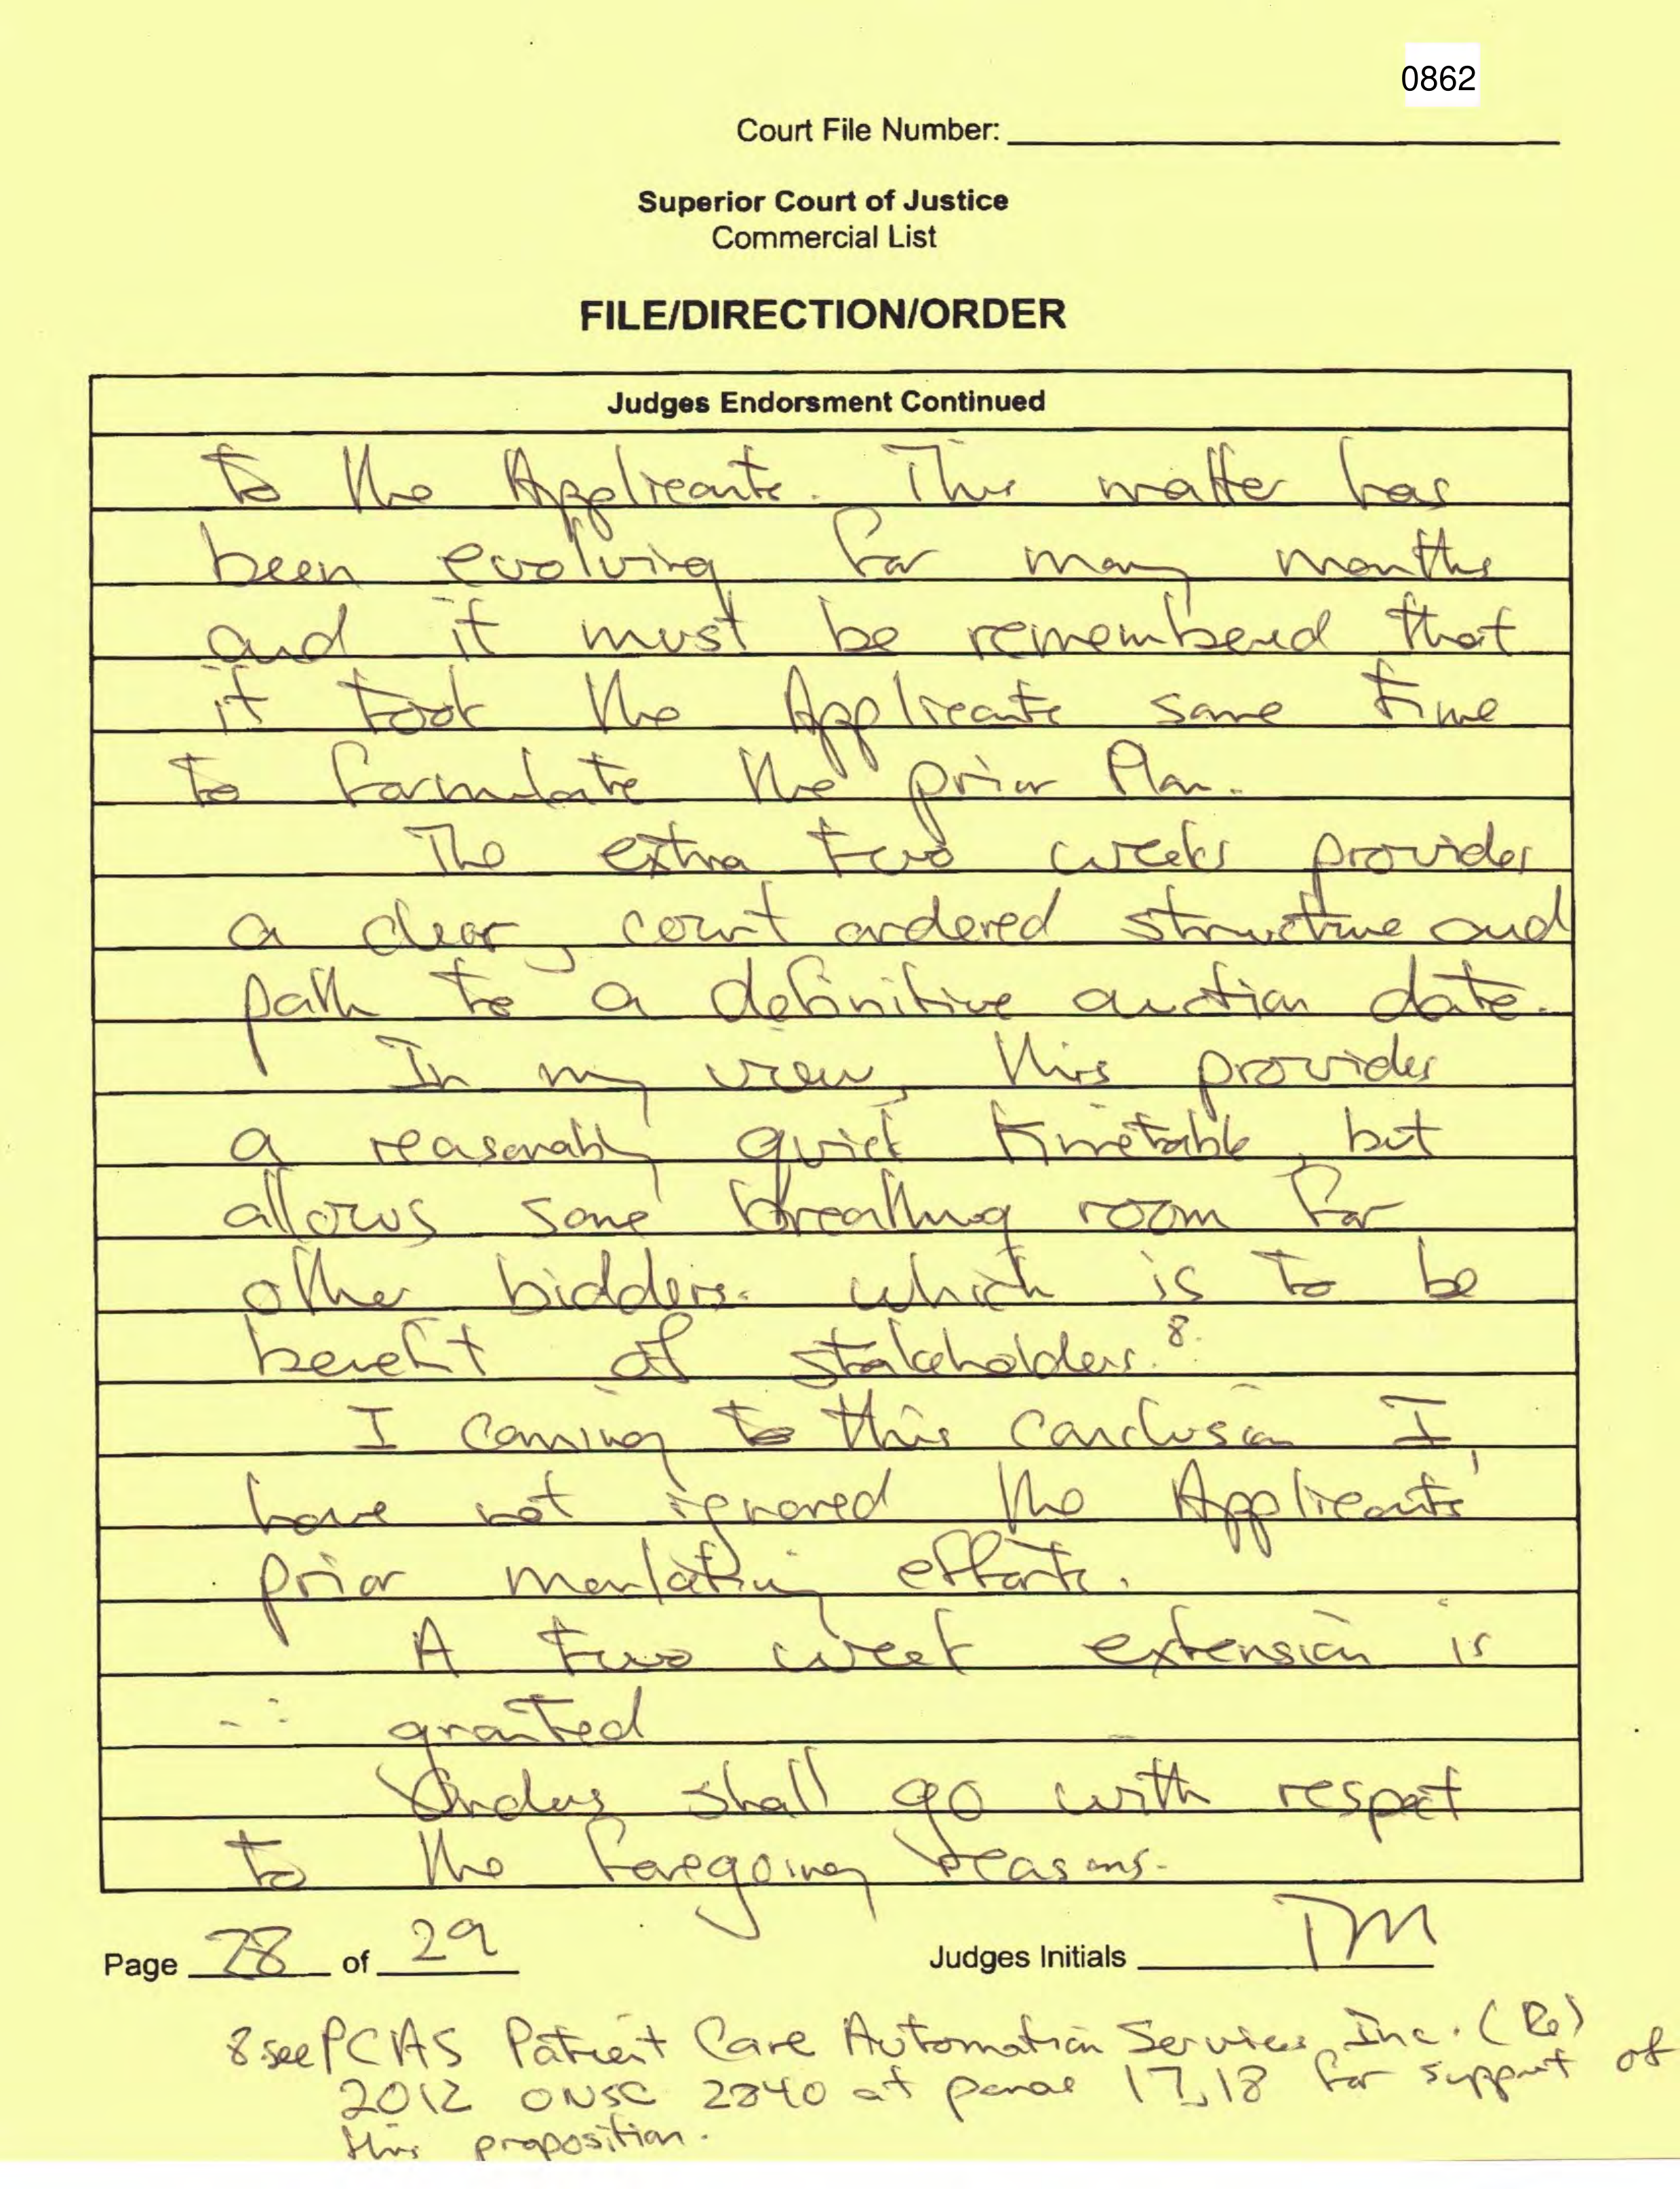 0862
Court File Number:
Superior Court of Justice
Commercial List
FILE/DIRECTION/ORDER
Judges Endorsment Continued
to the Applicants. This matter has
been evolving for many months
and it must be remembered that
it took the Applicants some time
to formulate the prior Plan.
The extra two weeks provides
a clear, court ordered structure and
path to a definitive auction date.
In my view, this provides
a reasonably quick timetable, but
allows some breathing room for
other bidders. which is to be
benefit of stakeholders.8.
I coming to this conclusion I
have not ignored the Applicants'
prior marketing efforts.
A two week extension is
∴ granted
Orders shall go with respect
to the foregoing reasons.
Page 28 of 29 Judges Initials TM
8 see PCAS Patient Care Automation Services Inc. (Re)
2012 ONSC 2840 at paras 17,18 for support of
this proposition.